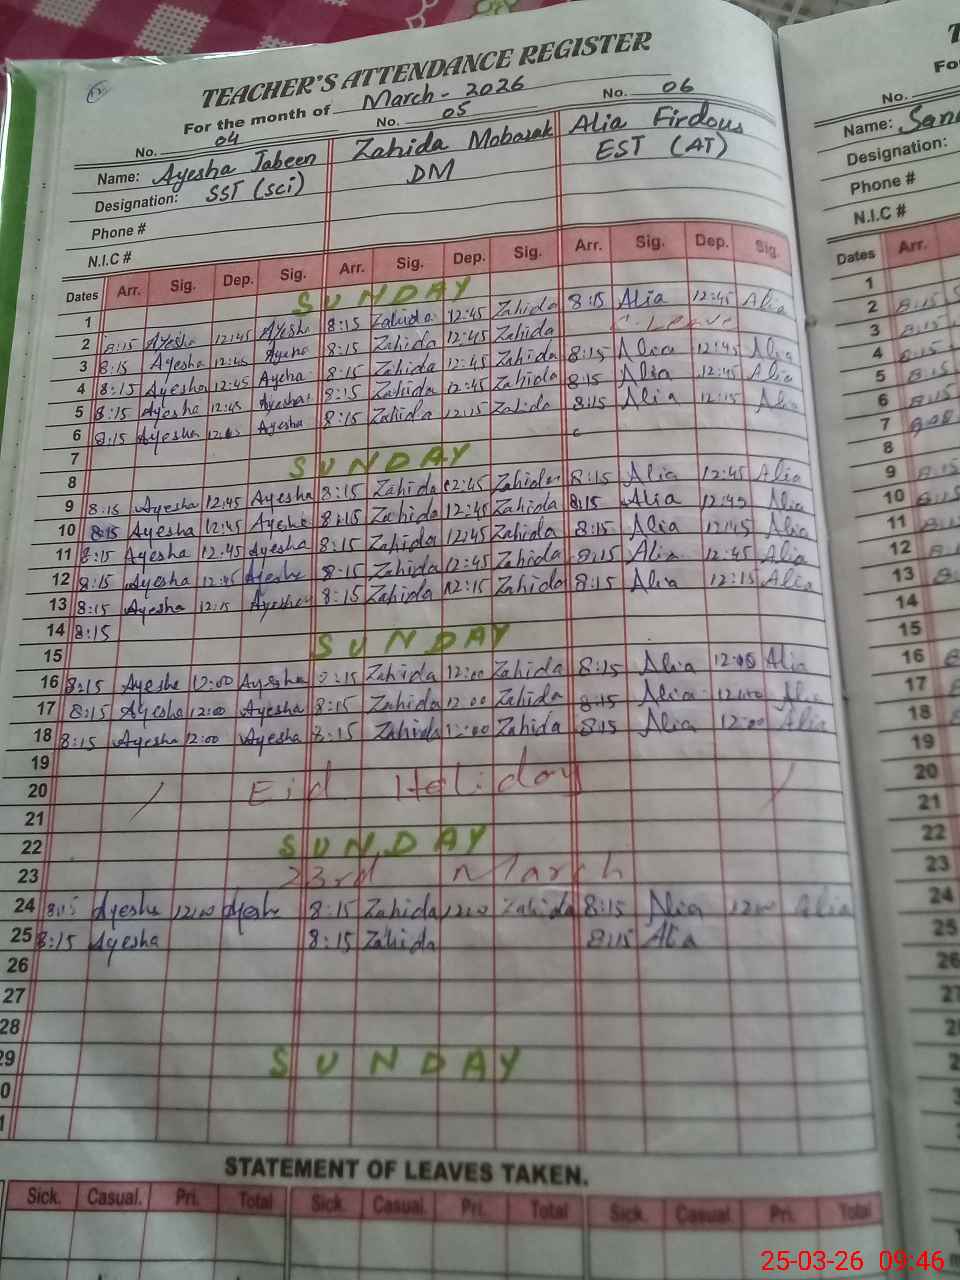 TEACHER'S ATTENDANCE REGISTER
For the month of March - 2026
No. 04 No. 05 No. 06
Name: Ayesha Jabeen Zahida Mobarak Alia Firdous
Designation: SST (sci) DM EST (AT)
Phone #
N.I.C #
Dates Arr. Sig. Dep. Sig. Arr. Sig. Dep. Sig. Arr. Sig. Dep. Sig.
1 SUNDAY
2 8:15 Ayesha 12:45 Ayesha 8:15 Zahida 12:45 Zahida 8:15 Alia 12:45 Alia
3 8:15 Ayesha 12:45 Ayesha 8:15 Zahida 12:45 Zahida Leave
4 8:15 Ayesha 12:45 Ayesha 8:15 Zahida 12:45 Zahida 8:15 Alia 12:45 Alia
5 8:15 Ayesha 12:45 Ayesha 8:15 Zahida 12:45 Zahida 8:15 Alia 12:45 Alia
6 8:15 Ayesha Ayesha 8:15 Zahida 12:15 Zahida 8:15 Alia 12:15 Alia
7
8 SUNDAY
9 8:15 Ayesha 12:45 Ayesha 8:15 Zahida 12:45 Zahida 8:15 Alia 12:45 Alia
10 8:15 Ayesha 12:45 Ayesha 8:15 Zahida 12:45 Zahida 8:15 Alia 12:45 Alia
11 8:15 Ayesha 12:45 Ayesha 8:15 Zahida 12:45 Zahida 8:15 Alia 12:45 Alia
12 8:15 Ayesha 12:45 Ayesha 8:15 Zahida 12:45 Zahida 8:15 Alia 12:45 Alia
13 8:15 Ayesha 12:15 Ayesha 8:15 Zahida 12:15 Zahida 8:15 Alia 12:15 Alia
14 8:15
15 SUNDAY
16 8:15 Ayesha 12:00 Ayesha 8:15 Zahida 12:00 Zahida 8:15 Alia 12:00 Alia
17 8:15 Ayesha 12:00 Ayesha 8:15 Zahida 12:00 Zahida 8:15 Alia 12:00 Alia
18 8:15 Ayesha 12:00 Ayesha 8:15 Zahida 12:00 Zahida 8:15 Alia 12:00 Alia
19
20 / Eid Holiday /
21
22 SUNDAY
23 23rd March
24 8:15 Ayesha 12:00 Ayesha 8:15 Zahida 12:00 Zahida 8:15 Alia 12:00 Alia
25 8:15 Ayesha 8:15 Zahida 8:15 Alia
26
27
28
29 SUNDAY
0
1
STATEMENT OF LEAVES TAKEN.
Sick. Casual. Pri. Total Sick. Casual. Pri. Total Sick. Casual. Pri. Total
No.
Name:
Designation:
Phone #
N.I.C #
Dates Arr.
1
2 8:15
3 8:15
4 8:15
5 8:15
6 8:15
7
8
9 8:15
10 8:15
11
12
13
14
15
16
17
18
19
20
21
22
23
24
25
26
25-03-26 09:46